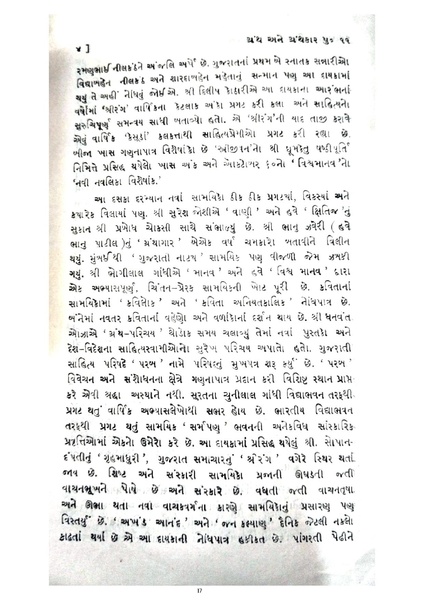 ૪ ]
ગ્રંથ અને ગ્રંથકાર પુ૦ ૧૧
રમણભાઈ નીલકંઠને અંજલિ અર્પે છે. ગુજરાતનાં પ્રથમ બે સ્નાતક સન્નારીઓ
વિદ્યાબહેન નીલકંઠ અને શારદાબહેન મહેતાનું સન્માન પણ આ દાયકામાં
થયું તે અહીં નોંધવું જોઈએ. શ્રી દિલીપ કોઠારીએ આ દાયકાના આરંભનાં
વર્ષોમાં ‘શ્રીરંગ’ વાર્ષિકના કેટલાક અંકો પ્રગટ કરી કલા અને સાહિત્યનો
સુરુચિપૂર્ણ સમન્વય સાધી બતાવ્યો હતો. એ ‘શ્રીરંગ’ની યાદ તાજી કરાવે
એવું વાર્ષિક ‘કેસૂડાં’ કલકત્તાથી સાહિત્યપ્રેમીઓ પ્રગટ કરી રહ્યા છે.
બીજા ખાસ ગણનાપાત્ર વિશેષાંકો છે શ્રી ધૂમકેતુ ષષ્ટીપૂર્તિ
નિમિત્તે પ્રસિદ્ધ થયેલો ખાસ અંક અને ઑક્ટોબર ૬૦નો ‘વિશ્વમાનવ’નો
‘નવી નવલિકા વિશેષાંક.’
આ દસકા દરમ્યાન નવાં સામયિકો ઠીક ઠીક પ્રગટયાં, વિકસ્યાં અને
કયારેક વિલાયાં પણ. શ્રી સુરેશ જોશીએ ‘વાણી’ અને હવે ‘ક્ષિતિજ’નું
સુકાન શ્રી પ્રબોધ ચોકસી સાથે સંભાળ્યું છે. શ્રી ભાનુ ઝવેરી (હવે
ભાનુ પાટીલ)નું ‘ગ્રંથાગાર’ બેએક વર્ષ ચમકારો બતાવીને વિલીન
થયું. મુંબઈથી ‘ગુજરાતી નાટ્ય’ સામયિક પણ વીજળી જેમ ઝબકી
ગયું. શ્રી ભોગીલાલ ગાંધીએ ‘માનવ’ અને હવે ‘વિશ્વ માનવ’ દ્વારા
એક અભ્યાસપૂર્ણ, ચિંતન-પ્રેરક સામયિકની ખોટ પૂરી છે. કવિતાનાં
સામયિકોમાં ‘કવિલોક’ અને ‘કવિતા અનિયતકાલિક’ નોંધપાત્ર છે.
બંનેમાં નવતર કવિતાનાં વહેણો અને વળાંકોનાં દર્શન થાય છે. શ્રી ધનવંત
ઓઝાએ ‘ગ્રંથ-પરિચય’ થોડોક સમય ચલાવ્યું તેમાં નવાં પુસ્તકો અને
દેશ-વિદેશના સાહિત્યસ્વામીઓનો સુરેખ પરિચય અપાતો હતો. ગુજરાતી
સાહિત્ય પરિષદે ‘પરબ’ નામે પરિષદનું મુખપત્ર શરૂ કર્યું છે. ‘પરબ’
વિવેચન અને સંશોધનના ક્ષેત્રે ગણનાપાત્ર પ્રદાન કરી વિશિષ્ટ સ્થાન પ્રાપ્ત
કરે એવી શ્રદ્ધા અસ્થાને નથી. સૂરતના ચુનીલાલ ગાંધી વિદ્યાભવન તરફથી
પ્રગટ થતું વાર્ષિક અભ્યાસલેખોથી સભર હોય છે. ભારતીય વિદ્યાભવન
તરફથી પ્રગટ થતું સામયિક ‘સમર્પણ’ ભવનની અનેકવિધ સાંસ્કારિક
પ્રવૃત્તિઓમાં એકનો ઉમેરો કરે છે. આ દાયકામાં પ્રસિદ્ધ થયેલું શ્રી. સોપાન-
દંપતીનું ‘ગૃહમાધુરી’, ગુજરાત સમાચારનું ‘શ્રીરંગ’ વગેરે સ્થિર થતાં
જાય છે. શિષ્ટ અને સંસ્કારી સામયિકો પ્રજાની ઊઘડતી જતી
વાચનભૂખને પોષે છે અને સંસ્કારે છે. વધતી જતી વાચનતૃષા
અને ઊભા થતા નવા વાચકવર્ગના કારણે સામયિકોનું પ્રસારણ પણ
વિસ્તર્યું છે. ‘અખંડ આનંદ’ અને ‘જન કલ્યાણ’ દૈનિક જેટલી નકલો
કાઢતાં થયાં છે એ આ દાયકાની નોંધપાત્ર હકીકત છે. પાંગરતી પેઢીને
17